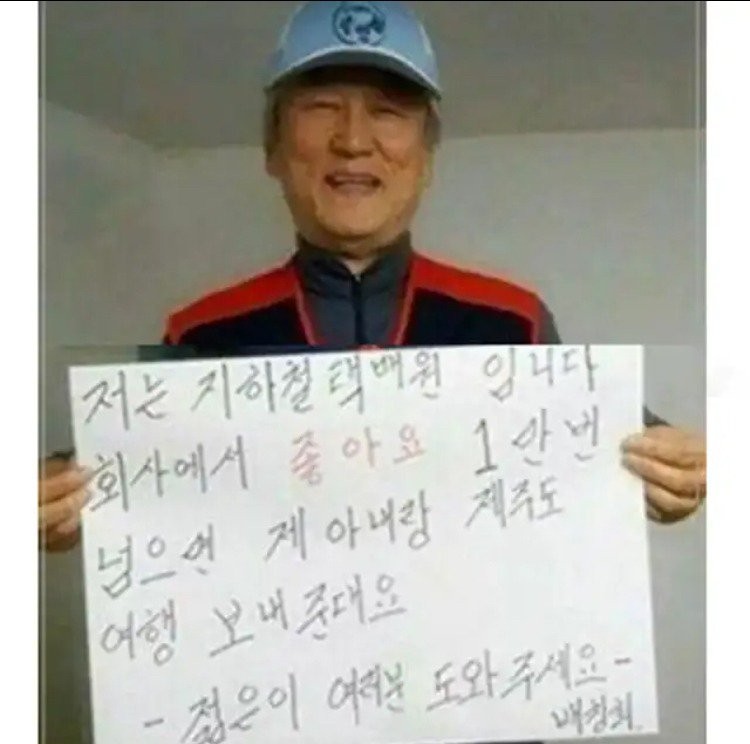 저는 지하철택배원 입니다
회사에서 좋아요 1만번
넘으면 제 아내랑 제주도
여행 보내준대요
- 젊은이 여러분 도와주세요 -
배창희